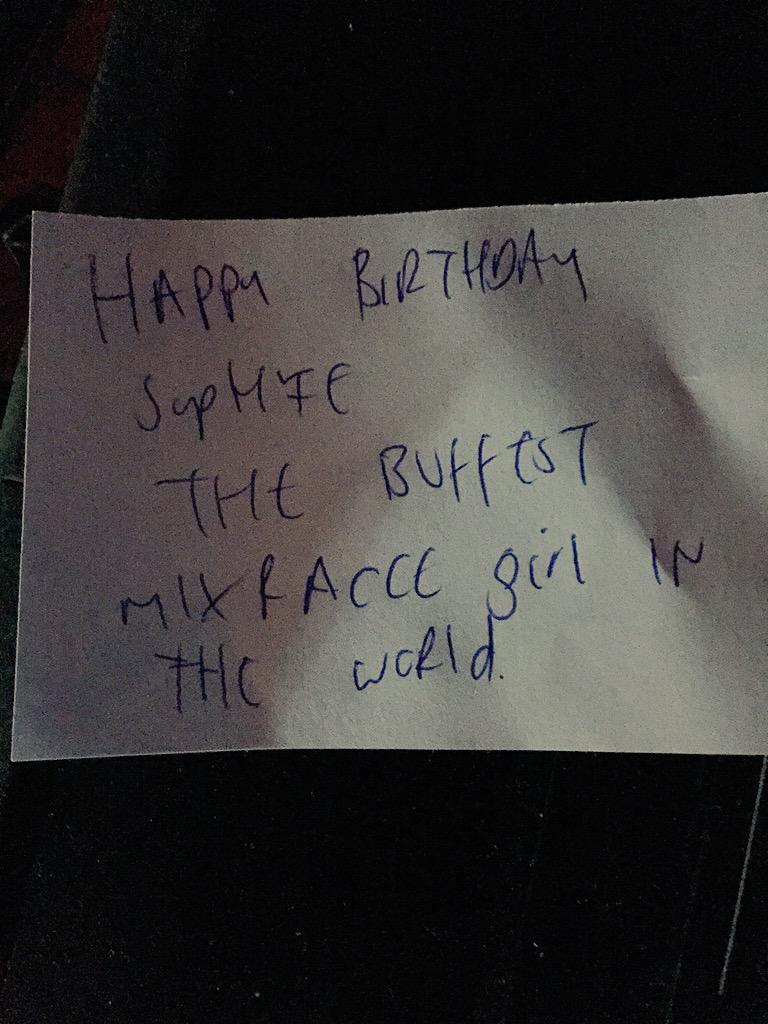 HAPPy BIRTHDAy
SOPHIE
THE BUFFEST
MIXRACCE girl IN
THE WORLd.